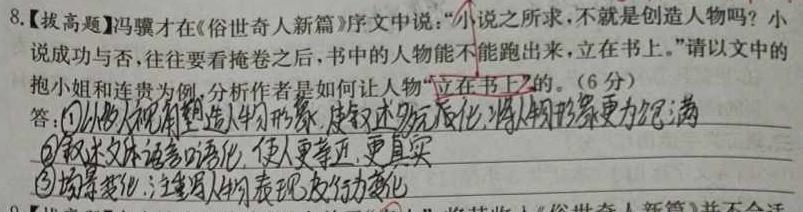 8.【拔高题】冯骥才在《俗世奇人新篇》序文中说:“小说之所求,不就是创造人物吗?小
说成功与否,往往要看掩卷之后,书中的人物能不能跑出来,立在书上。”请以文中的
抱小姐和连贵为例,分析作者是如何让人物“立在书上”的。(6分)
答:①以他人视角塑造人物形象,使叙述多元化,将人物形象更力饱满
②叙述文体语言口语化,使人更亲近,更真实
③场景变化,注重写人物表现及行为变化